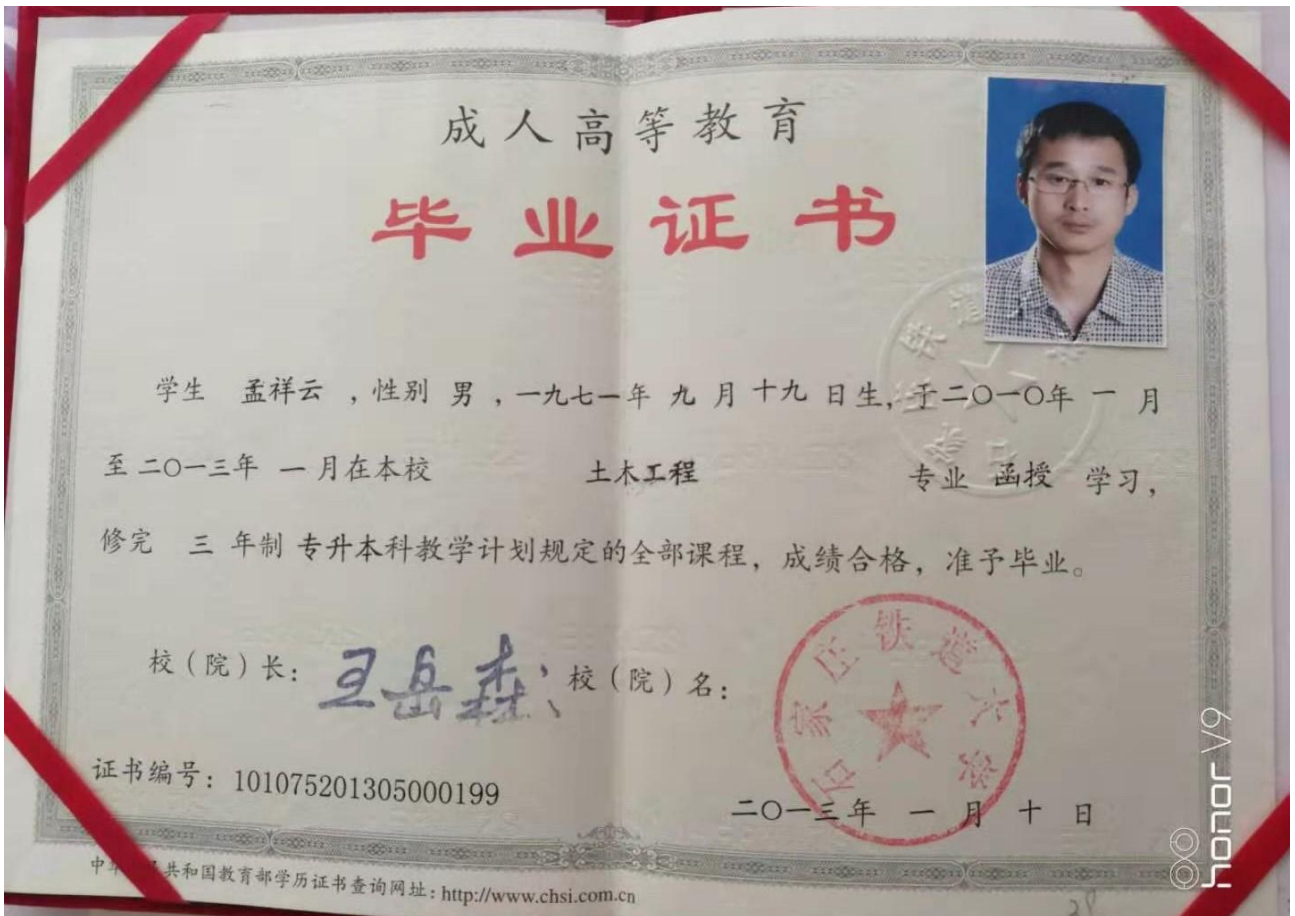 成人高等教育
毕业证书
学生 孟祥云 ，性别 男 ，一九七一年 九 月 十九 日生，于二〇一〇年 一 月
至 二〇一三年 一 月在本校 土木工程 专业 函授 学习，
修完 三 年制 专升本科教学计划规定的全部课程，成绩合格，准予毕业。
校（院）长： 王岳森 校（院）名：
石家庄铁道大学
证书编号：101075201305000199
二〇一三年 一 月 十 日
中华人民共和国教育部学历证书查询网址：http://www.chsi.com.cn
honor V9
28